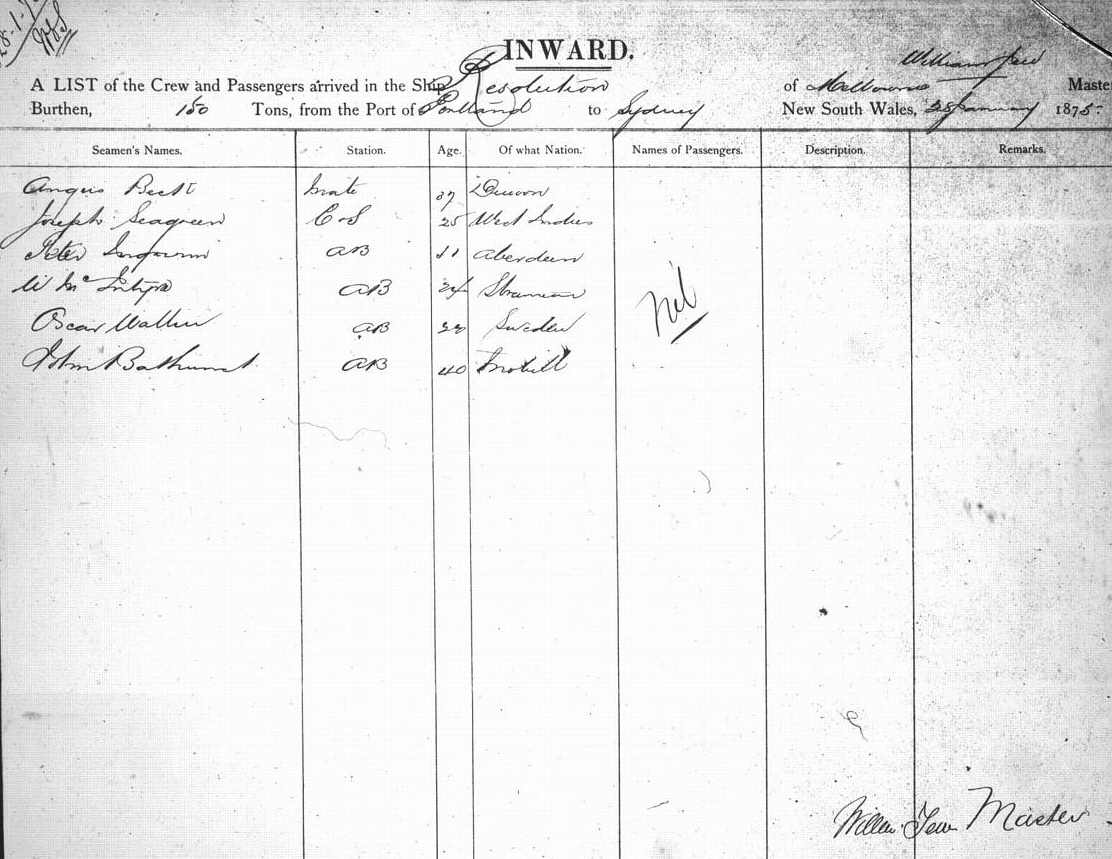 28-1-75
INWARD.
William Tew
A LIST of the Crew and Passengers arrived in the Ship Resolution of Melbourne Master
Burthen, 150 Tons, from the Port of Portland to Sydney New South Wales, 28 January 1875
Seamen's Names. Station. Age. Of what Nation. Names of Passengers. Description. Remarks.
Angus Mate 37 Dunoon
Joseph Seagreen C & S 25 West Indies
Peter AB Aberdeen
W McIntyre AB 24 Stranraer
Oscar Wallin AB 22 Sweden
John Bathurst AB 40
Nil
William Tew Master